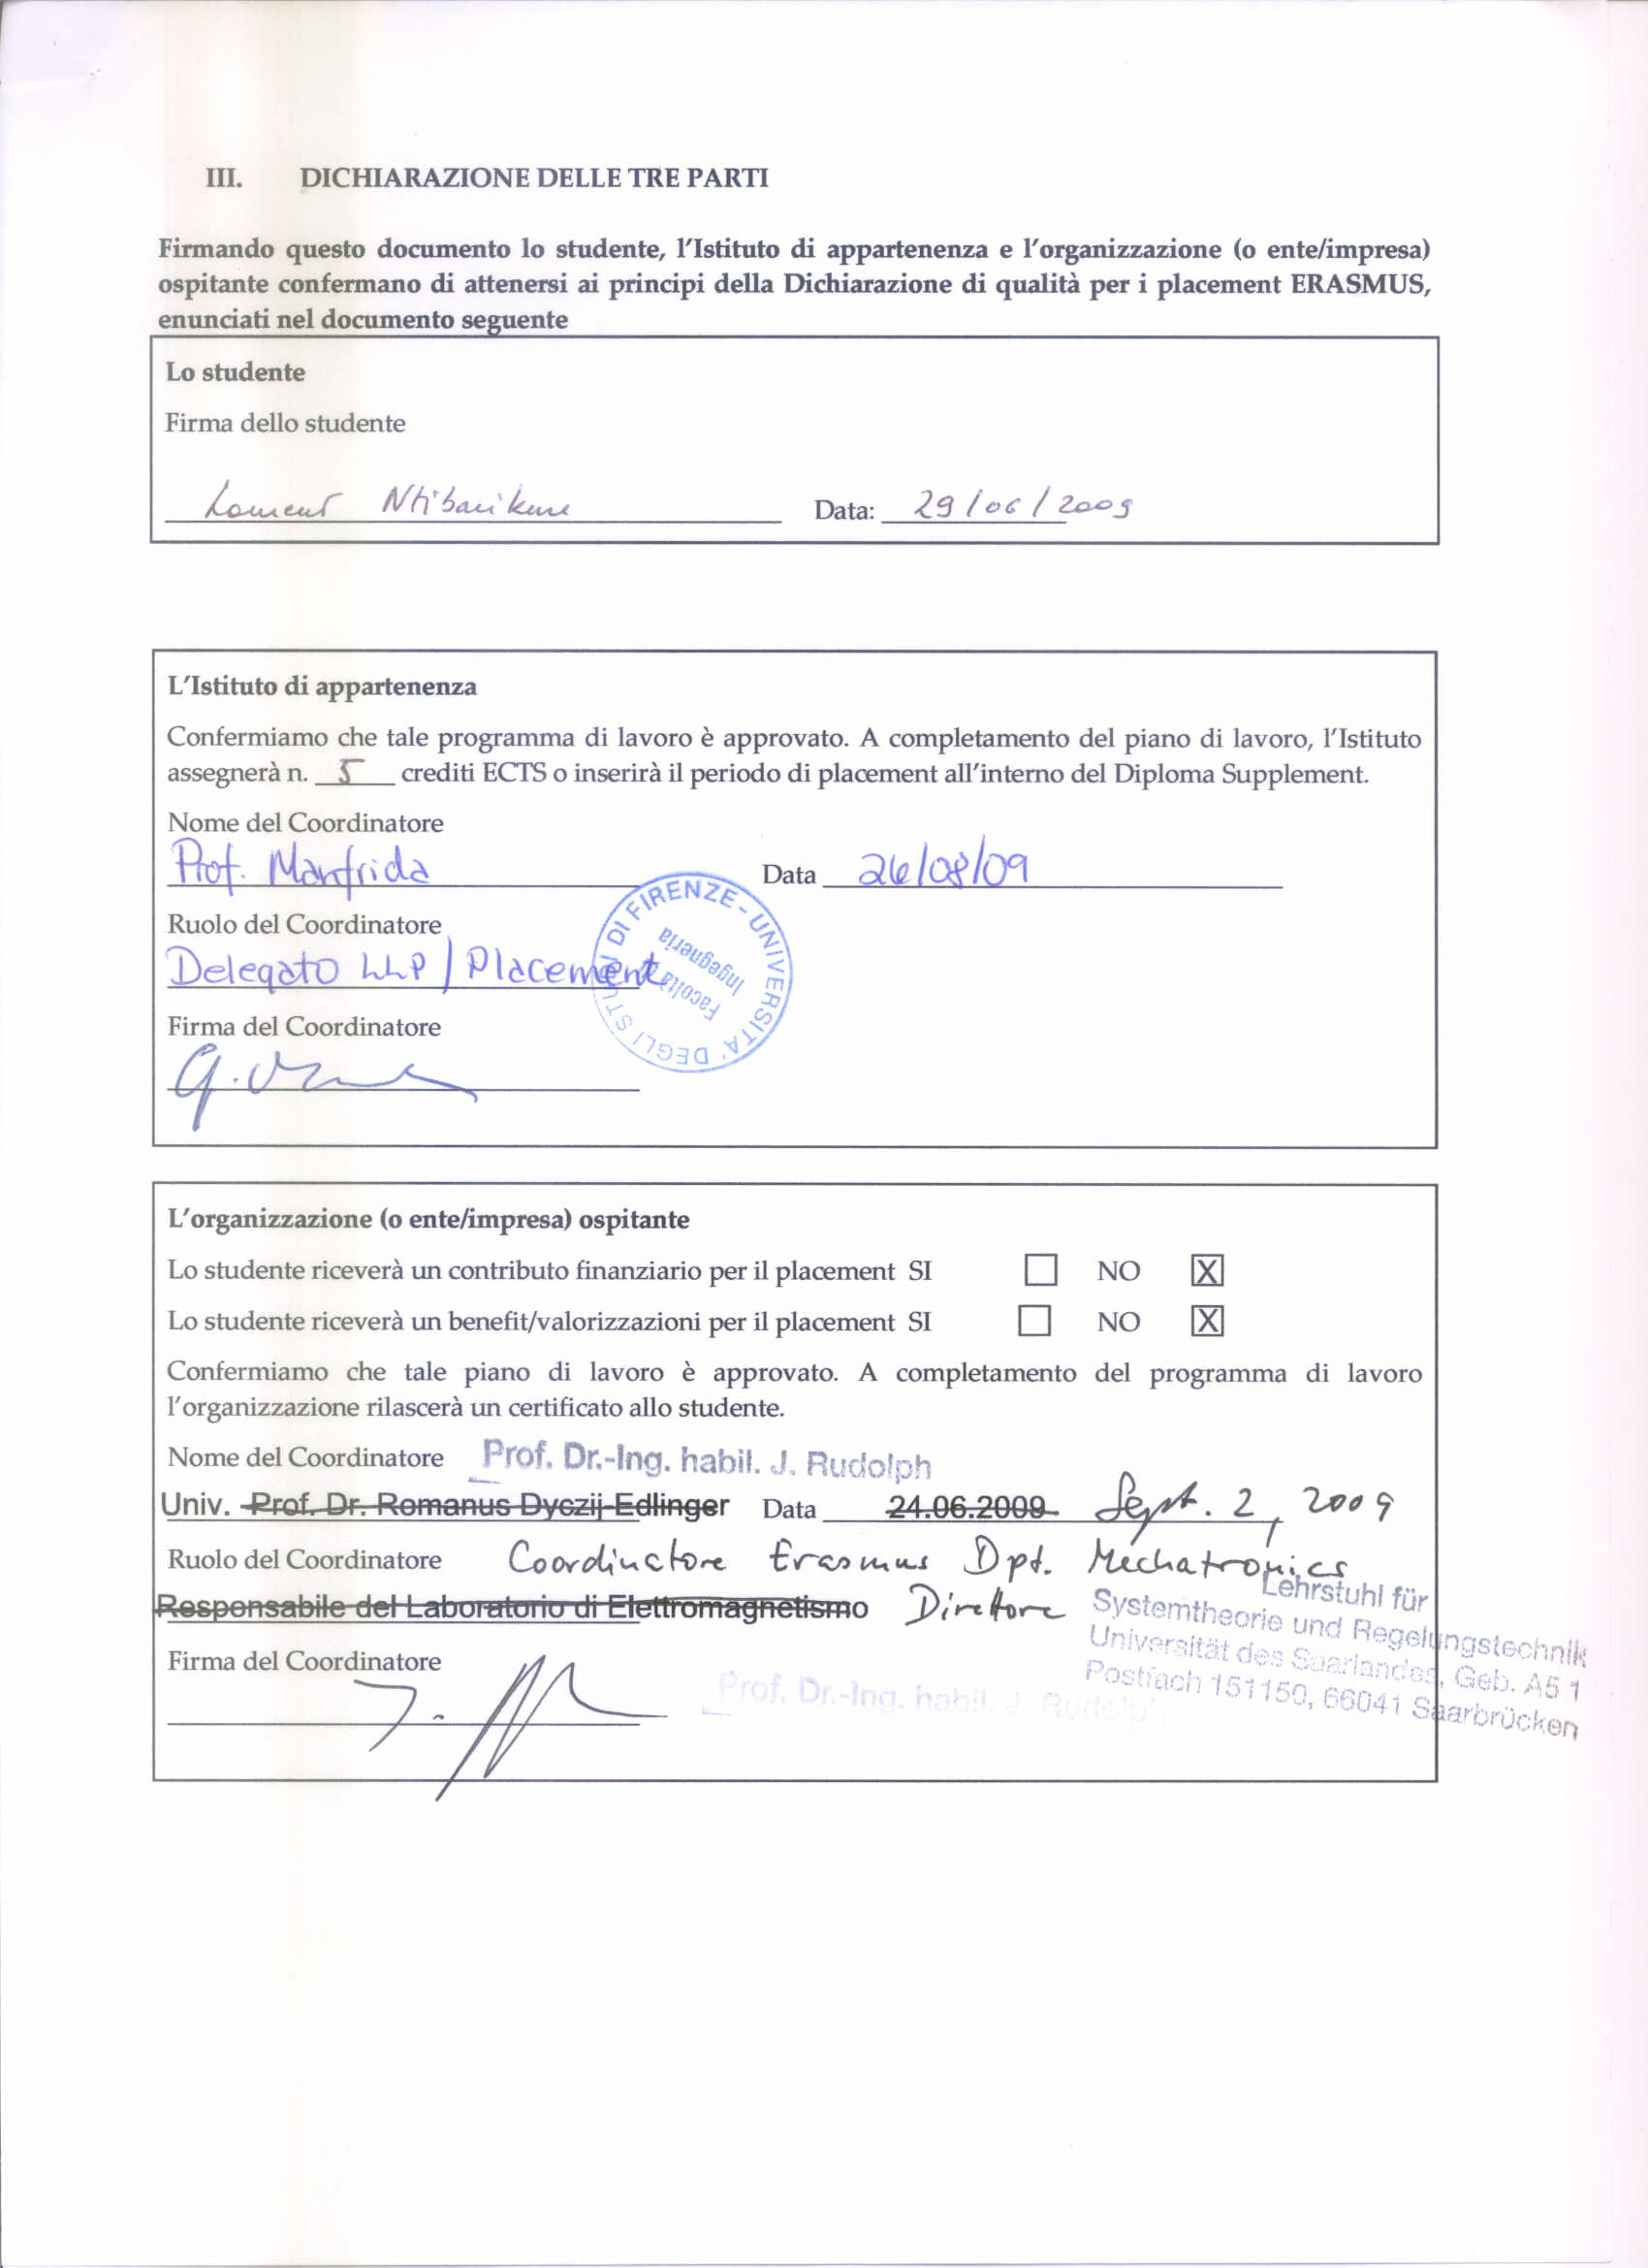 III. DICHIARAZIONE DELLE TRE PARTI
Firmando questo documento lo studente, l'Istituto di appartenenza e l'organizzazione (o ente/impresa)
ospitante confermano di attenersi ai principi della Dichiarazione di qualità per i placement ERASMUS,
enunciati nel documento seguente
Lo studente
Firma dello studente
Data: 29/06/2009
L'Istituto di appartenenza
Confermiamo che tale programma di lavoro è approvato. A completamento del piano di lavoro, l'Istituto
assegnerà n. 5 crediti ECTS o inserirà il periodo di placement all'interno del Diploma Supplement.
Nome del Coordinatore
Prof. Manfrida Data 26/08/09
Ruolo del Coordinatore
Delegato LLP / Placement
UNIVERSITA' DEGLI STUDI DI FIRENZE -
Facoltà
Ingegneria
Firma del Coordinatore
L'organizzazione (o ente/impresa) ospitante
Lo studente riceverà un contributo finanziario per il placement SI NO X
Lo studente riceverà un benefit/valorizzazioni per il placement SI NO X
Confermiamo che tale piano di lavoro è approvato. A completamento del programma di lavoro
l'organizzazione rilascerà un certificato allo studente.
Nome del Coordinatore Prof. Dr.-Ing. habil. J. Rudolph
Univ. Prof. Dr. Romanus Dyczij-Edlinger Data 24.06.2009 Sept. 2, 2009
Ruolo del Coordinatore Coordinatore Erasmus Dpt. Mechatronics
Responsabile del Laboratorio di Elettromagnetismo Direttore
Lehrstuhl für
Systemtheorie und Regelungstechnik
Universität des Saarlandes, Geb. A5 1
Postfach 151150, 66041 Saarbrücken
Firma del Coordinatore
Prof. Dr.-Ing. habil. J. Rudolph